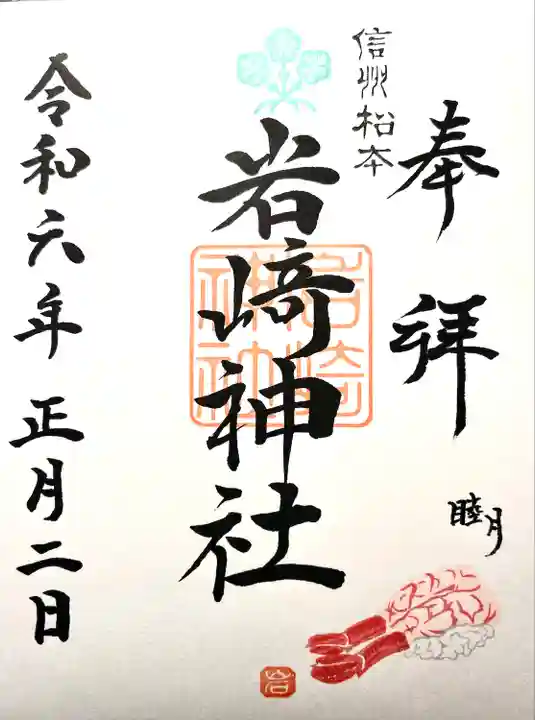 奉拝
睦月
信州松本
岩﨑神社
岩﨑神社
岩
令和六年 正月二日